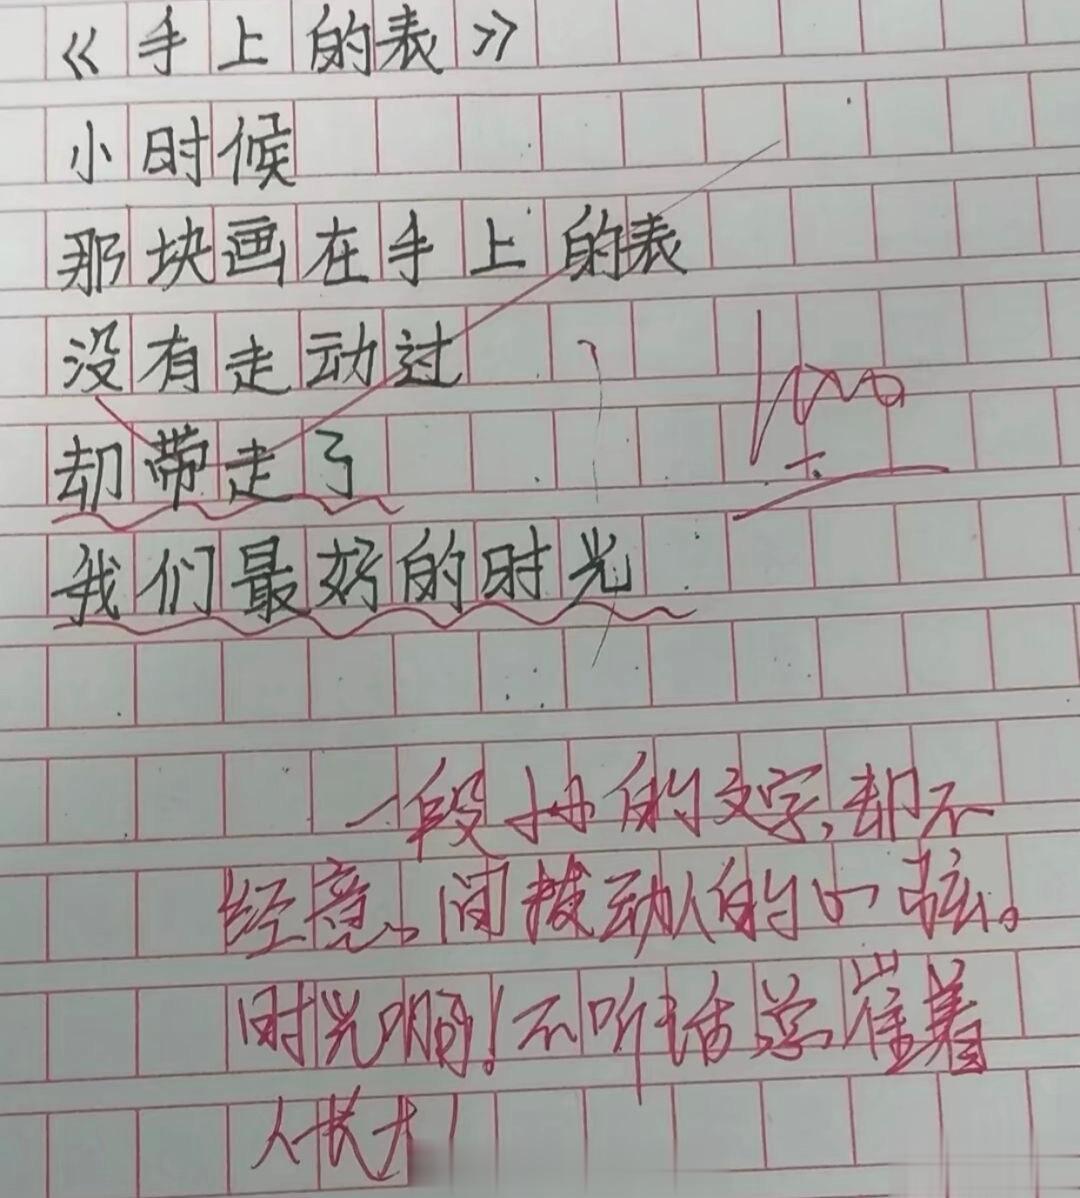 《手上的表》
小时候
那块画在手上的表
没有走动过
却带走了
我们最好的时光
100
一段抒的文字,却不
经意间拨动人的心弦。
时光啊!不听话总崔着
人长大!